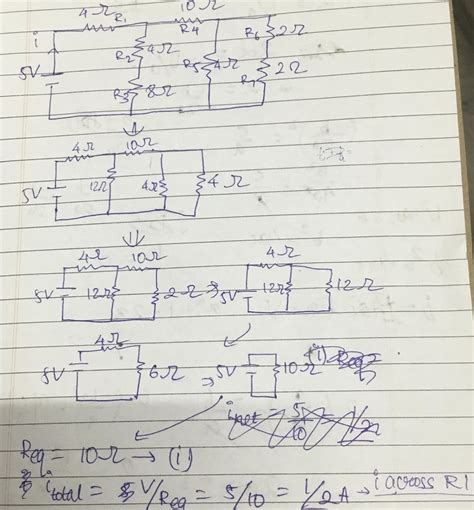 4Ω R1 10Ω R4
i R2 4Ω R5 4Ω R6 2Ω
5V R3 8Ω R7 2Ω
⇓
4Ω 10Ω
5V 12Ω 4Ω 4Ω
⇓
4Ω 10Ω 4Ω
5V 12Ω 2Ω ⇒ 5V 12Ω 12Ω
4Ω
5V 6Ω ⇒ 5V 10Ω (i) Req
inet = 5/10 = 1/2A
Req = 10Ω → (i)
itotal = V/Req = 5/10 = 1/2 A → i across R1